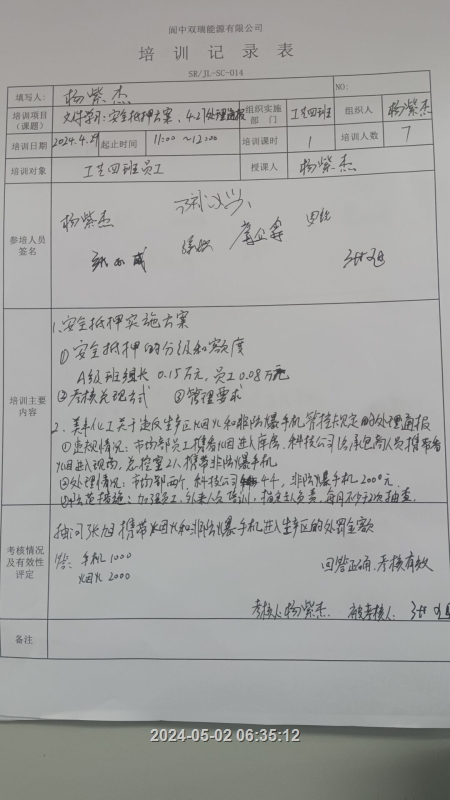 阆中双瑞能源有限公司
培训记录表
SR/JL-SC-014
填写人: 杨紫杰 NO:
培训项目（课题） 文件学习:安全抵押方案、4.27处理通报 组织实施部门 工艺四班 组织人 杨紫杰
培训日期 2024.4.29 起止时间 11:00 ~12:00 培训课时 1 培训人数 7
培训对象 工艺四班员工 授课人 杨紫杰
参培人员签名 杨紫杰
培训主要内容
1.安全抵押实施方案
①安全抵押的分级和额度
A级班组长 0.15万元,员工0.08万元
②考核兑现方式 ③管理要求
2、美丰化工关于违反生产区烟火和非防爆手机管控规定的处理通报
①违规情况:市场部员工携香烟进入库房,科技公司 承包商人员携带香
烟进入现场,总控室2人携带非防爆手机
②处理情况:市场部两个,科技公司 4个,非防爆手机2000元
③防范措施:加强员工,外来人员培训,指定专人负责,每月不少于2次抽查.
考核情况及有效性评定
抽问张旭携带烟火和非防爆手机进入生产区的处罚金额
答: 手机 1000
烟火 2000
回答正确,考核有效
考核人:杨紫杰 被考核人:
备注
2024-05-02 06:35:12